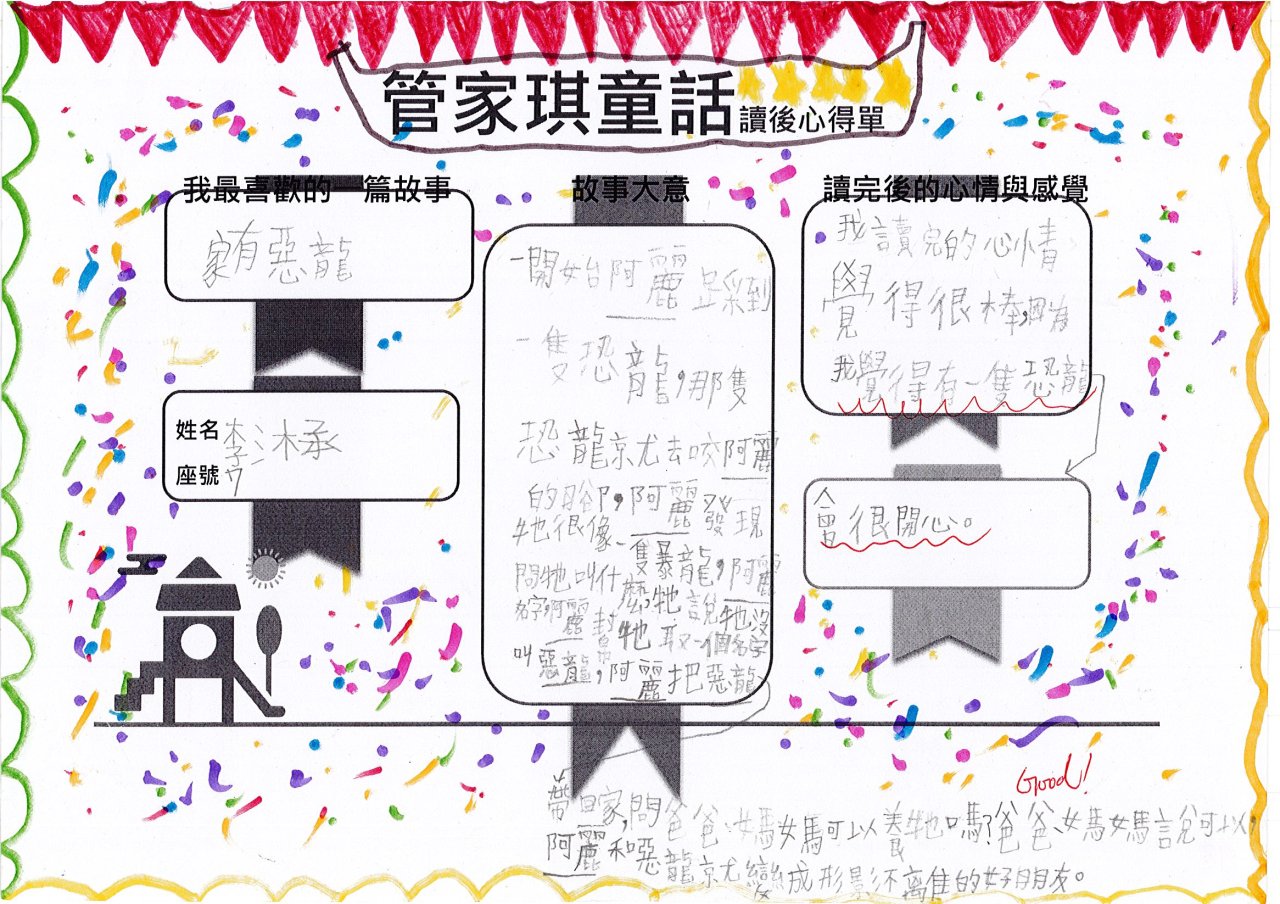 管家琪童話讀後心得單
我最喜歡的一篇故事
家有惡龍
姓名
座號
故事大意
一開始阿麗踩到
一隻恐龍,那隻
恐龍就去咬阿麗
的腳,阿麗發現
牠很像一隻暴龍,阿麗
問牠叫什麼,牠說牠沒
名字,阿麗幫牠取一個名字
叫惡龍,阿麗把惡龍
帶回家,問爸爸、媽媽可以養牠嗎?爸爸、媽媽說可以,
阿麗和惡龍就變成形影不離隹的好朋友。
讀完後的心情與感覺
我讀完的心情,
覺得很棒,因為
我覺得有一隻恐龍
會很開心。
Good!